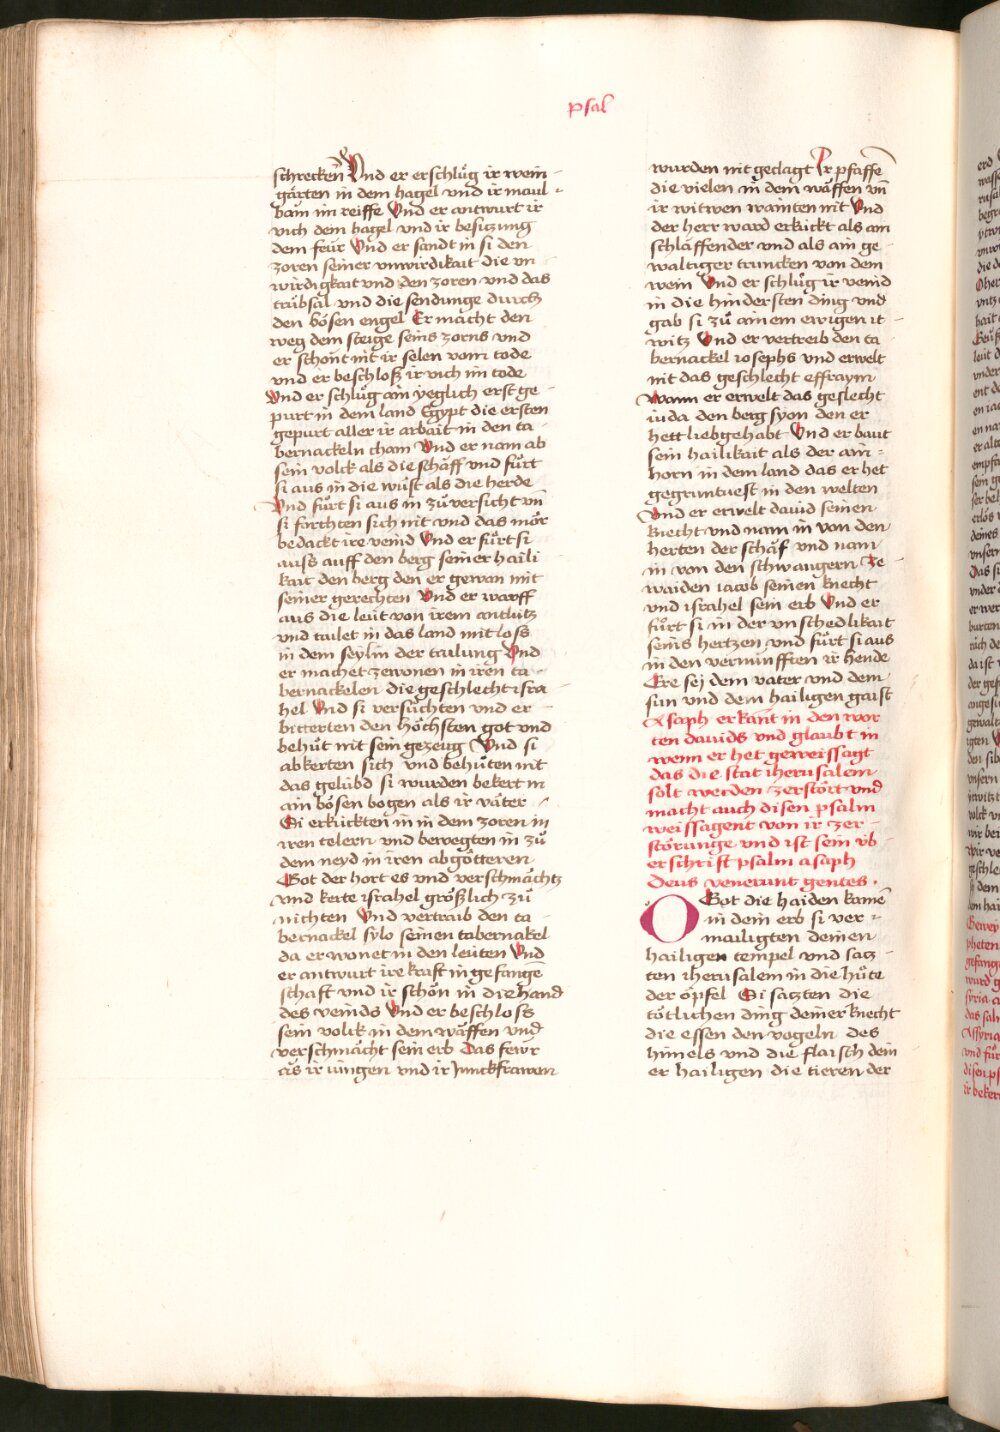 psal
schrecken̄ Vnd er erschlůg ir wein
gärten in dem hagel vnd ir maul
bäm im reiffe Vnd er antwurt ir
vich dem hagel vnd ir besiczung
dem feür Vnd er sandt in si den
zoren seiner vnwirdikait die vn
wirdigkait vnd den zoren vnd das
trübsal vnd die sendunge durch
den bösen engel Er macht den
weg dem steige seins zorns vnd
er schont nit ir selen vom tode
vnd er beschloß ir vich im tode
Vnd er schlůg ain yeglich erst ge
purt in dem land Egypt die ersten
gepurt aller ir arbait in den ta
bernackeln cham Vnd er nam ab
sein volck als die schäff vnd fürt
si aus in die wüst als die herde
Vnd fürt si aus in zůuersicht vn̄
si forchten sich nit vnd das mör
bedackt ire veind Vnd er fürt si
auss auff den berg seiner haili
kait den berg den er gewan mit
seiner gerechten Vnd er warff
aus die leüt von irem antlütz
vnd tailet in das land mit loss
in dem seylin der tailung Vnd
er machet zewonen in iren ta
bernackelen die geschlecht isra
hel Vnd si versůchten vnd er
bitterten den höchsten got vnd
behüt nit sein gezeug Vnd si
abkerten sich vnd behüten nit
das gelübd si wurden bekert in
ain bösen bogen als ir väter
Si erkückten in in dem zoren in
iren telern vnd bewegten in zů
dem neyd in iren abgötteren
Got der hort es vnd verschmächtz
vnd kerte israhel größlich zů
nichten Vnd vertraib den ta
bernackel sylo seinen tabernakel
da er wonet in den leüten Vnd
er antwurt ire kraft in gefänge
schaft vnd ir schön in die hand
des veinds Vnd er beschloss
sein volck in dem wäffen vnd
verschmächt sein erb Das fewr
ais ir iungen vnd ir Junckfrawen
wurden nit geclagt Ir pfaffē
die vielen in dem wäffen vn̄
ir witwen wainten nit Vnd
der herr ward erkückt als ain
schlaffender vnd als ain ge
waltiger truncken von dem
wein Vnd er schlůg ir veind
in die hindersten ding vnd
gab si zů ainem ewigen it
witz Vnd er vertreib den ta
bernackel iosephs vnd erwelt
nit das geschlecht effraym
Wann er erwelt das geslecht
iuda den berg syon den er
hett liebgehabt Vnd er baut
sein hailikait als der ain
horn in dem land das er het
gegruntuest in den welten
Vnd er erwelt dauid seinen
knecht vnd nam in von den
herten der schäf vnd nam
in von den schwangern Ze
waiden iacob seinen knecht
vnd israhel sein erb Vnd er
fürt si in der vnschedlikait
seins hertzen vnd fürt si aus
in den vernünfften ir hende
Ere sej dem vater vnd dem
sun vnd dem hailigen gaist
Asaph erkant in den wor
ten dauids vnd glaubt in
wenn er het geweissagt
das die stat iherusalem
solt werden zerstört vnd
macht auch disen psalm
weissagent von ir zer
störunge vnd ist sein vb
erschrift psalm asaph
Deus venerunt gentes
O Got die haiden kamē
in dein erb si ver
mailigten deinen
hailigen tempel vnd saz
ten iherusalem in die hüte
der öpfel Si sazten die
tötlichen ding deiner knecht
die essen den vogeln des
himels vnd die flaisch dein
er hailigen die tieren der